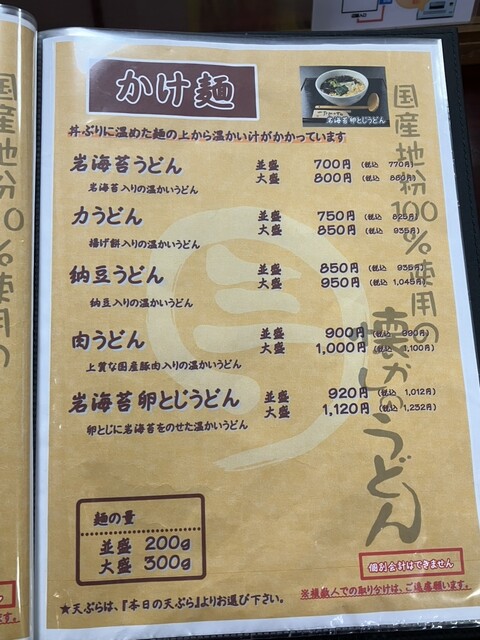 かけ麺
岩海苔卵とじうどん
丼ぶりに温めた麺の上から温かい汁がかかっています
岩海苔うどん 並盛 700円 (税込 770円)
大盛 800円 (税込 880円)
岩海苔入りの温かいうどん
力うどん 並盛 750円 (税込 825円)
大盛 850円 (税込 935円)
揚げ餅入りの温かいうどん
納豆うどん 並盛 850円 (税込 935円)
大盛 950円 (税込 1,045円)
納豆入りの温かいうどん
肉うどん 並盛 900円 (税込 990円)
大盛 1,000円 (税込 1,100円)
上質な国産豚肉入りの温かいうどん
岩海苔卵とじうどん 並盛 920円 (税込 1,012円)
大盛 1,120円 (税込 1,232円)
卵とじに岩海苔をのせた温かいうどん
国産地粉100%使用の
懐かしのうどん
麺の量
並盛 200g
大盛 300g
個別会計はできません
※複数人での取り分けは、ご遠慮願います。
★天ぷらは、『本日の天ぷら』よりお選び下さい。
国産地粉10
%使用の